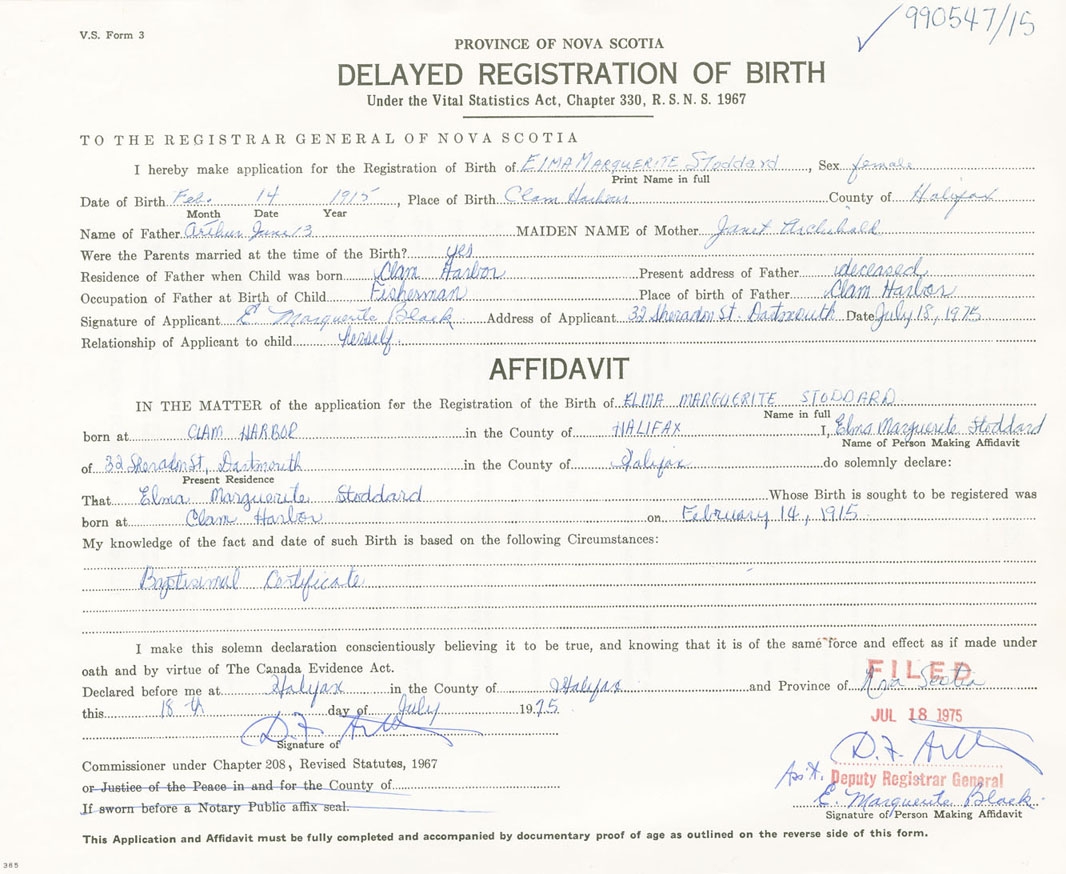 V.S. Form 3
990547/15
PROVINCE OF NOVA SCOTIA
DELAYED REGISTRATION OF BIRTH
Under the Vital Statistics Act, Chapter 330, R. S. N. S. 1967
TO THE REGISTRAR GENERAL OF NOVA SCOTIA
I hereby make application for the Registration of Birth of ELMA MARGUERITE Stoddard, Sex female
Print Name in full
Date of Birth Feb. 14 1915, Place of Birth Clam Harbour County of Halifax
Month Date Year
Name of Father Arthur MAIDEN NAME of Mother Janet Archibald
Were the Parents married at the time of the Birth? yes
Residence of Father when Child was born Clam Harbor Present address of Father deceased
Occupation of Father at Birth of Child Fisherman Place of birth of Father Clam Harbor
Signature of Applicant E. Marguerite Black Address of Applicant 32 Sheradon St. Dartmouth Date July 18, 1975
Relationship of Applicant to child herself.
AFFIDAVIT
IN THE MATTER of the application for the Registration of the Birth of ELMA MARGUERITE STODDARD
Name in full
born at CLAM HARBOR in the County of HALIFAX I, Elma Marguerite Stoddard
Name of Person Making Affidavit
of 32 Sheradon St, Dartmouth in the County of Halifax do solemnly declare:
Present Residence
That Elma Marguerite Stoddard Whose Birth is sought to be registered was
born at Clam Harbor on February 14, 1915
My knowledge of the fact and date of such Birth is based on the following Circumstances:
Baptisimal Certificate
I make this solemn declaration conscientiously believing it to be true, and knowing that it is of the same force and effect as if made under
oath and by virtue of The Canada Evidence Act.
FILED
Declared before me at Halifax in the County of Halifax and Province of Nova Scotia
this 18th day of July 1975
JUL 18 1975
Signature of
D.F.
Commissioner under Chapter 208, Revised Statutes, 1967
Ass't. Deputy Registrar General
or Justice of the Peace in and for the County of
E. Marguerite Black
If sworn before a Notary Public affix seal.
Signature of Person Making Affidavit
This Application and Affidavit must be fully completed and accompanied by documentary proof of age as outlined on the reverse side of this form.
365